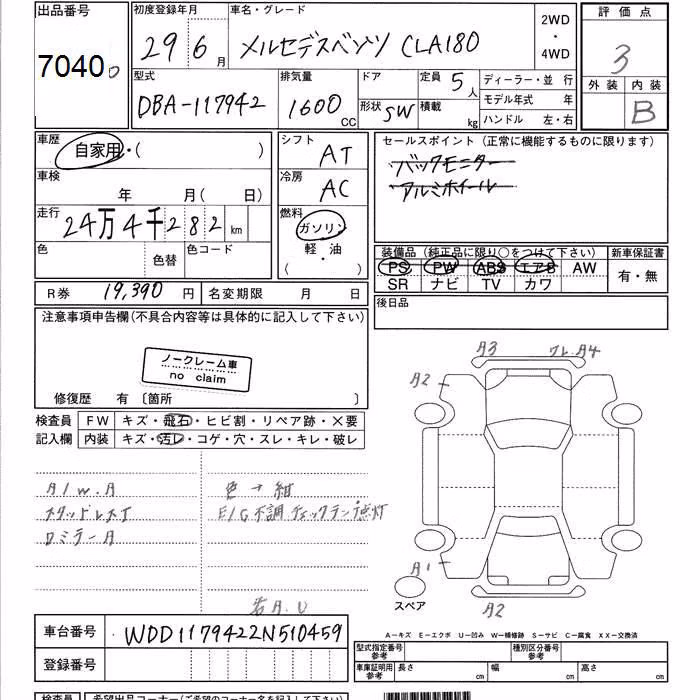 出品番号 初度登録年月 車名・グレード 2WD・4WD 評価点
7040 29年6月 メルセデスベンツ CLA180 3
型式 排気量 ドア 定員 5人 ディーラー・並行 外装 内装
DBA-117942 1600CC 形状 SW 積載 kg モデル年式 年 B
ハンドル 左・右
車歴 自家用・( ) シフト AT セールスポイント (正常に機能するものに限ります)
車検 年 月( 日) 冷房 AC バックモニター
アルミホイール
走行 24万4千282km 燃料 ガソリン・軽・油・( )
色 色替 色コード 装備品 (純正品に限り○をつけて下さい) 新車保証書
PS PW ABS エアB AW 有・無
SR ナビ TV カワ
R券 19,390円 名変期限 月 日 後日品
注意事項申告欄(不具合内容等は具体的に記入して下さい)
ノークレーム車
no claim
修復歴 有 〔箇所 〕
検査員 FW キズ・飛石・ヒビ割・リペア跡・×要
記入欄 内装 キズ・汚レ・コゲ・穴・スレ・キレ・破レ
A3 ワレ.A4
A2
A/W.A 色→紺
スタッドレス E/G不調 チェックランプ点灯
A1
スペア
A.U A2
車台番号 WDD1179422N510459
登録番号
A-キズ E-エクボ U-凹み W-補修跡 S-サビ C-腐食 XX-交換済
型式指定番号 参考 種別区分番号 参考
車庫証明用 参考 長さ cm 幅 cm 高さ cm
検査員 希望出品コーナー(ご希望のコーナー名を記入して下さい)